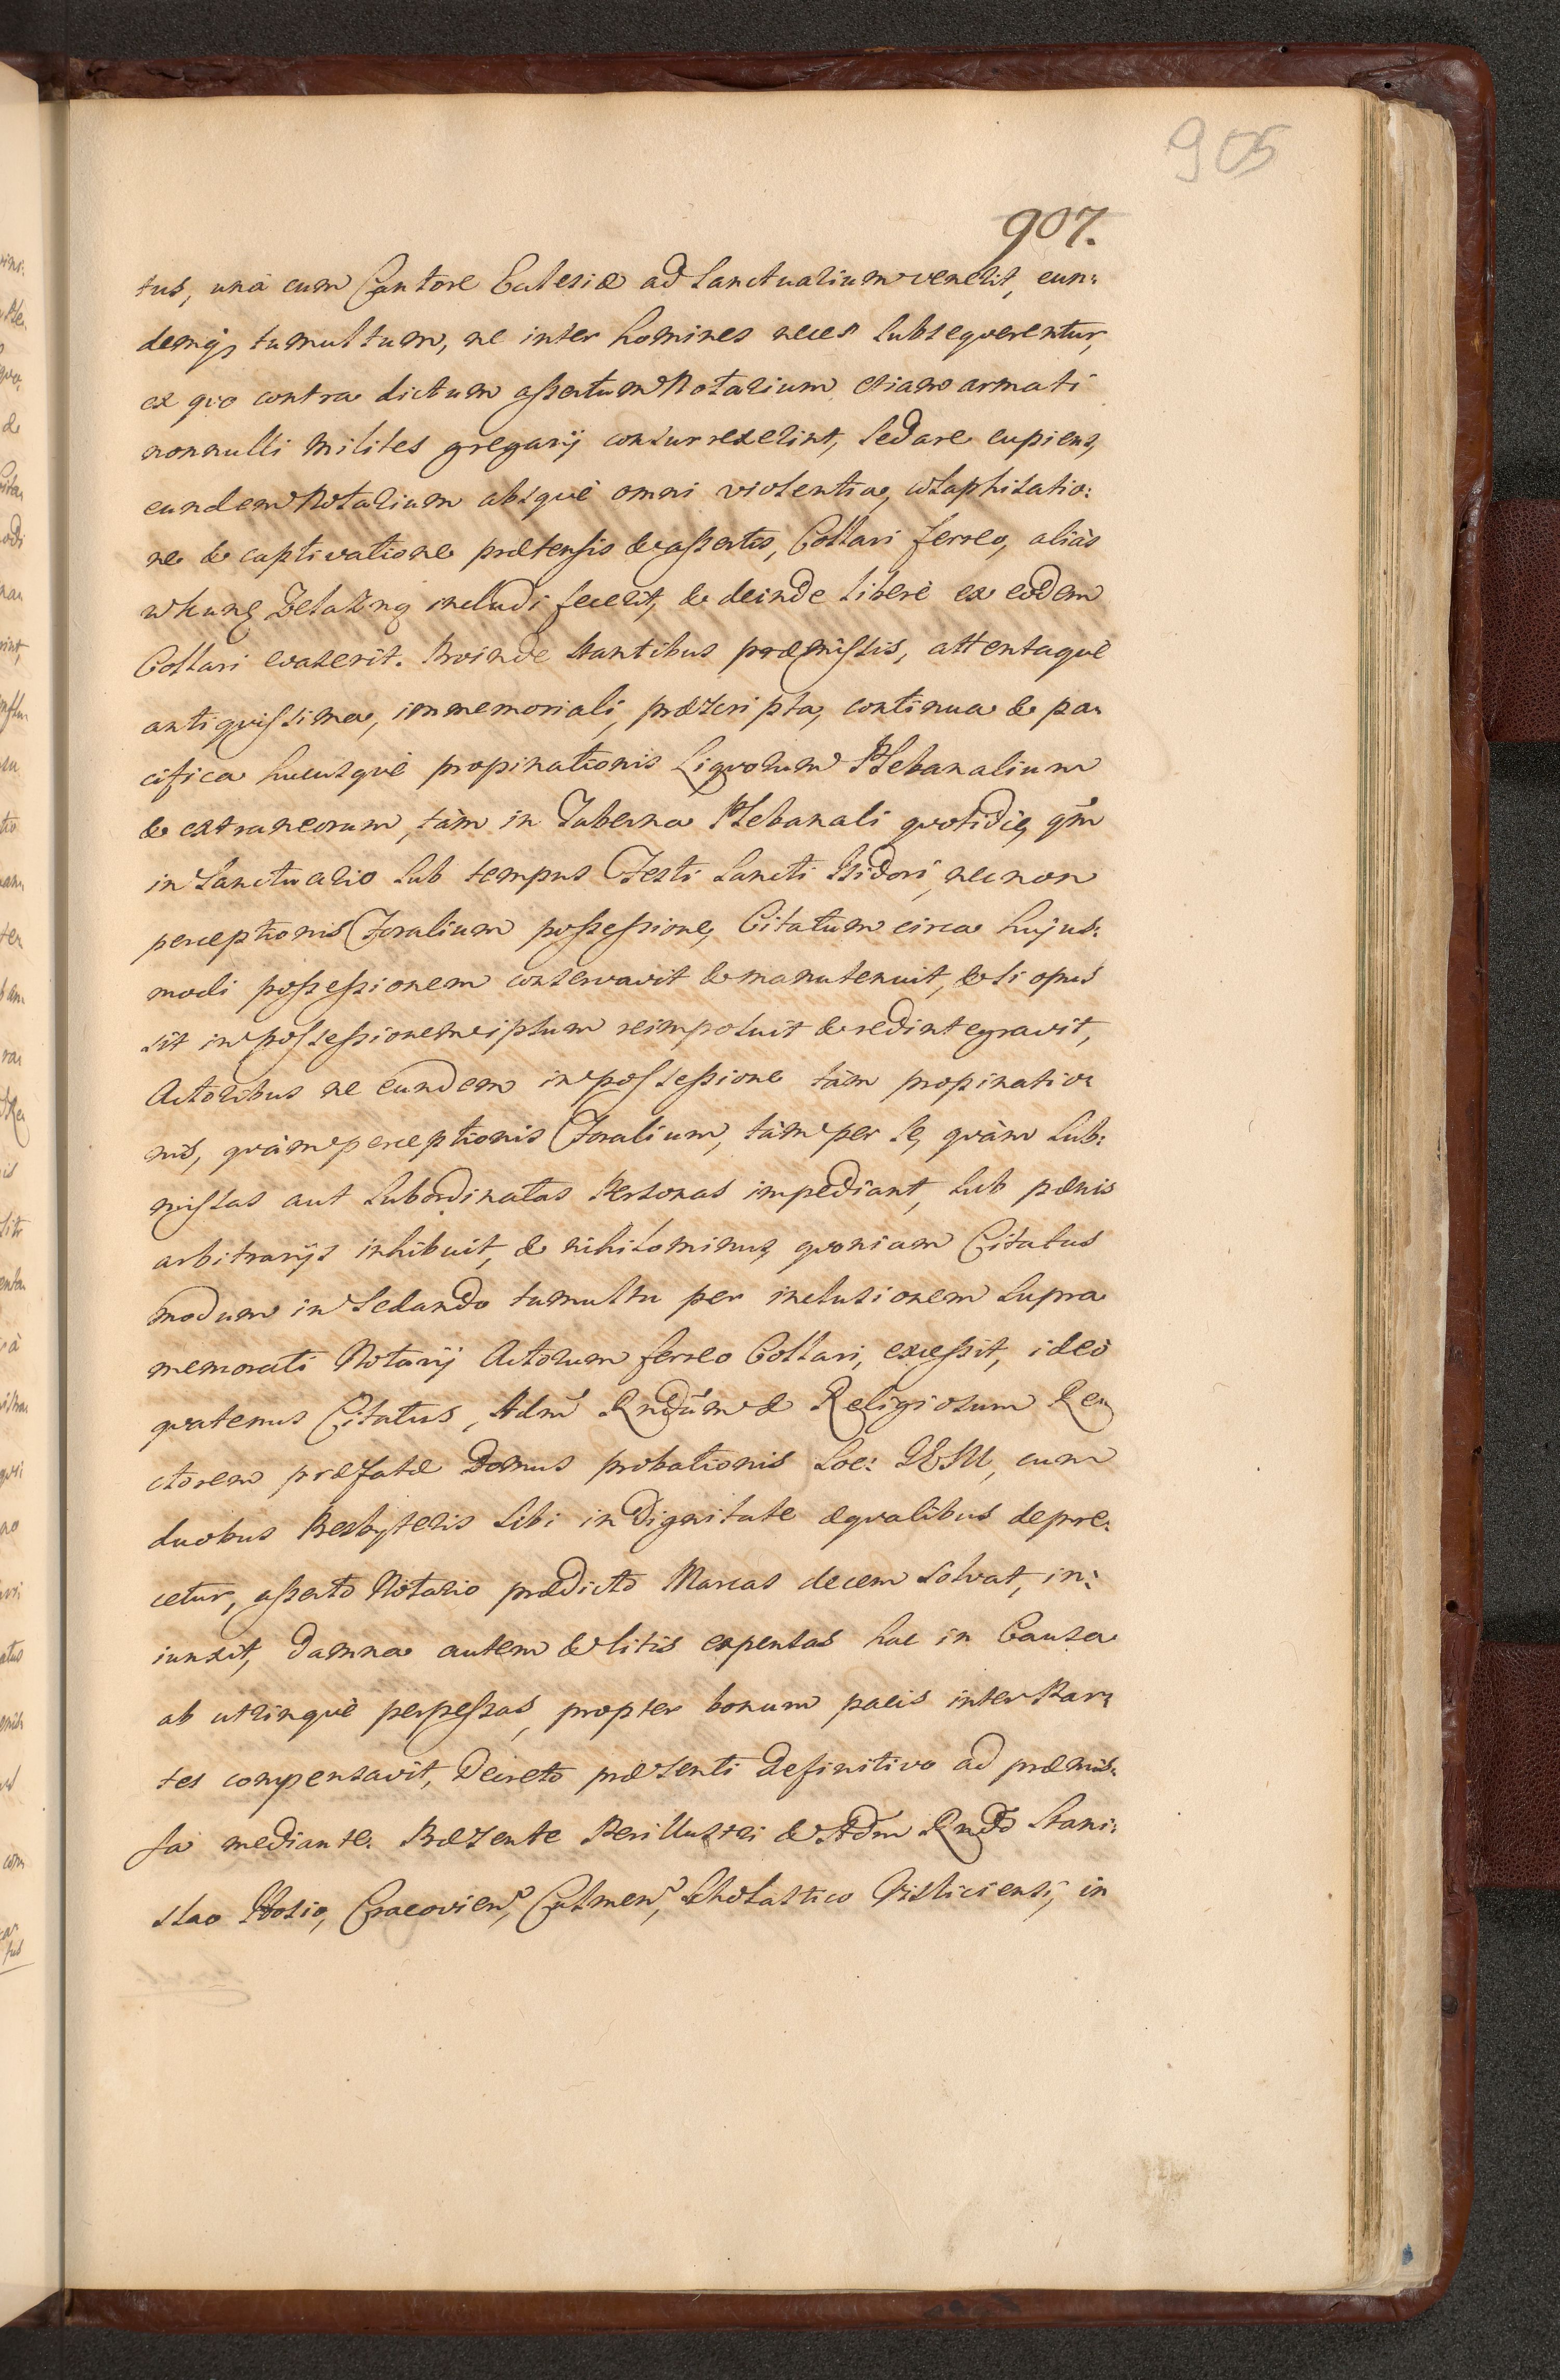 905
907.
tus, unà cum Cantore Ecclesiæ ad Sanctuarium venerit, eun:
demq́ₔ tumultum, ne inter homines neces subsequerentur,
ex quo contra dictum assertum Notarium etiam armati
nonnulli Milites gregarij consurrexerint, sedare cupiens,
eundem Notarium absquè omni violentia, colaphisatio:
ne & captivatione prætensis & assertis, Collari ferreo, aliàs
w kunę Zelazną includi fecerit, & deinde liberè ex eodem
Collari evaserit. Proinde stantibus præmissis, attentaquè
antiquissima, immemoriali, præscripta, continua & pa:
cifica hucusquè propinationis Liquorum Plebanalium
& extraneorum, tàm in Taberna Plebanali quotidie, qm̀
in Sanctuario sub tempus Festi Sancti Isidori, necnon
perceptionis Foralium possessione, Citatum circa hujus:
modi possessionem conservavit & manutenuit, & si opus
sit in possessionem ipsum reimposuit & redintegravit,
Actoribus ne eundem in possessione tàm propinatio:
nis, quàm perceptionis Foralium, tàm per se, quàm sub:
missas aut subordinatas Personas impediant, sub pœnis
arbitrarijs inhibuit, & nihilominus, quoniam Citatus
modum in sedando tumultu per inclusionem supra
memorati Notarij Actorum ferreo Collari, excessit, ideò
quatenus Citatus, Adm̃ Rndũm & Religiosum Re:
ctorem præfatæ Domus probationis Soc: IESU, cum
duobus Presbyteris sibi in dignitate æqualibus depre:
cetur, asserto Notario prædicto Marcas decem solvat, in:
iunxit, damna autem & litis expensas hac in Causa
ab utrinquè perpessas, propter bonum pacis inter Par:
tes compensavit, Decreto præsenti definitivo ad præmis:
sa mediante. Præsente Perillustri & Adm̃ Rndo Stani:
slao Hosio, Cracovien, Culmen, Scholastico Visliciensi, in